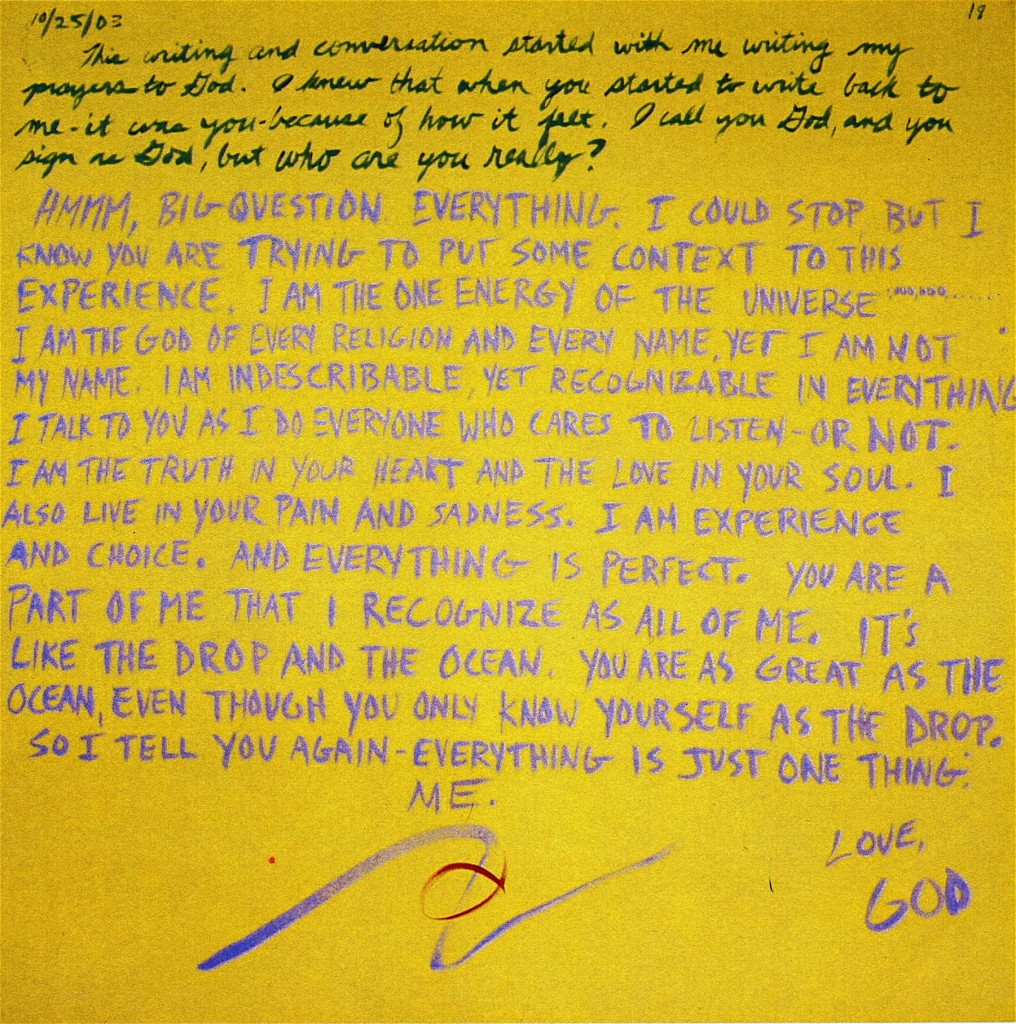 10/25/03
18
This writing and conversation started with me writing my
prayers to God. I knew that when you started to write back to
me - it was you - because of how it felt. I call you God, and you
sign as God, but who are you really?
HMMM, BIG QUESTION EVERYTHING. I COULD STOP, BUT I
KNOW YOU ARE TRYING TO PUT SOME CONTEXT TO THIS
EXPERIENCE. I AM THE ONE ENERGY OF THE UNIVERSE
I AM THE GOD OF EVERY RELIGION AND EVERY NAME, YET I AM NOT
MY NAME. I AM INDESCRIBABLE, YET RECOGNIZABLE IN EVERYTHING
I TALK TO YOU AS I DO EVERYONE WHO CARES TO LISTEN - OR NOT.
I AM THE TRUTH IN YOUR HEART AND THE LOVE IN YOUR SOUL. I
ALSO LIVE IN YOUR PAIN AND SADNESS. I AM EXPERIENCE
AND CHOICE. AND EVERYTHING IS PERFECT. YOU ARE A
PART OF ME THAT I RECOGNIZE AS ALL OF ME. IT'S
LIKE THE DROP AND THE OCEAN. YOU ARE AS GREAT AS THE
OCEAN, EVEN THOUGH YOU ONLY KNOW YOURSELF AS THE DROP.
SO I TELL YOU AGAIN - EVERYTHING IS JUST ONE THING:
ME.
LOVE,
GOD